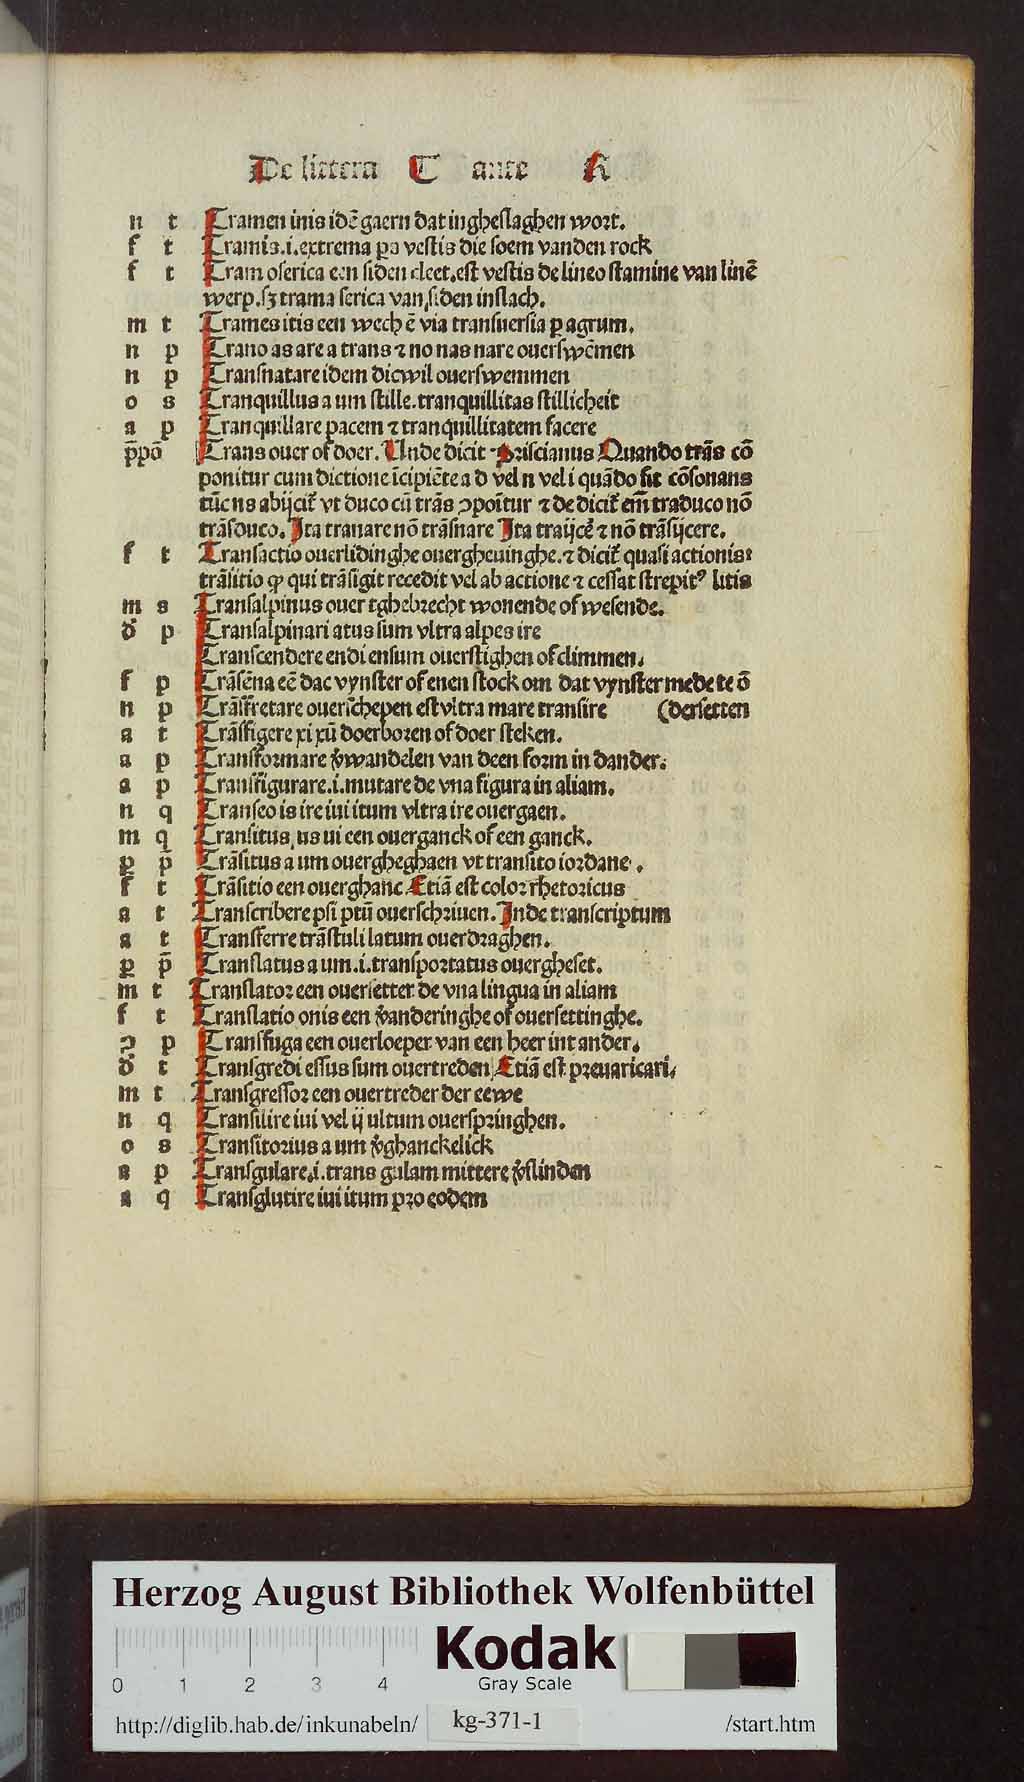 De littera T ante R
n t Tramen inis idē gaern dat ingheslaghen wort.
f t Tramis.i.extrema ps vestis die soem vanden rock
f t Tram oserica een siden cleet.est vestis de lineo stamine van linē
werp.sꝫ trama serica van siden inslach.
m t Trames itis een wech ē via transuersia ꝑ agrum.
n p Trano as are a trans ⁊ no nas nare ouerswēmen
n p Transnatare idem dicwil ouerswemmen
o s Tranquillus a um stille.tranquillitas stillicheit
a p Tranquillare pacem ⁊ tranquillitatem facere
p̄pō Trans ouer of doer. Unde dicit Priscianus Quando trās cō
ponitur cum dictione īcipiēte a d vel n vel i quādo sit cōsonans
tūc ns abijcit̄ vt duco cū trās ↄpoītur ⁊ de dicit̄ em̄ traduco nō
trāsduco. Ita tranare nō trāsnare Ita traijcē ⁊ nō trāsijcere.
f t Transactio ouerlidinghe ouergheuinghe.⁊ dicit̄ quasi actionis:
trāsitio ꝙ qui trāsigit recedit vel ab actione ⁊ cessat strepitꝰ litis
m s Transalpinus ouer tghebrecht wonende of wesende.
d̄ p Transalpinari atus sum vltra alpes ire
Transcendere endi ensum ouerstighen of climmen.
f p Trāsēna eē dac vynster of enen stock om dat vynster mede te ō
n p Trāsfretare ouerschepen est vltra mare transire (dersetten
a t Trāsfigere xi xū doerboren of doer steken.
a p Transformare v̄wandelen van deen form in dander.
a p Transfigurare.i.mutare de vna figura in aliam.
n q Transeo is ire iui itum vltra ire ouergaen.
m q Transitus us ui een ouerganck of een ganck.
ꝑ p̄ Trāsitus a um ouergheghaen vt transito iordane.
f t Trāsitio een ouerghanc Etiā est color rhetoricus
a t Transcribere psi ptū ouerschriuen. Inde transcriptum
a t Transferre trāstuli latum ouerdraghen.
ꝑ p̄ Translatus a um.i.transportatus ouergheset.
m t Translator een ouersetter de vna lingua in aliam
f t Translatio onis een v̄anderinghe of ouersettinghe.
ↄ p Transfuga een ouerloeper van een heer int ander.
d̄ t Transgredi essus sum ouertreden Etiā est preuaricari.
m t Transgressor een ouertreder der eewe
n q Transilire iui vel ij ultum ouerspringhen.
o s Transitorius a um v̄ghanckelick
a p Transgulare.i.trans gulam mittere v̄slinden
a q Transglutire iui itum pro eodem
Herzog August Bibliothek Wolfenbüttel
Kodak
Gray Scale
0 1 2 3 4
http://diglib.hab.de/inkunabeln/ kg-371-1 /start.htm